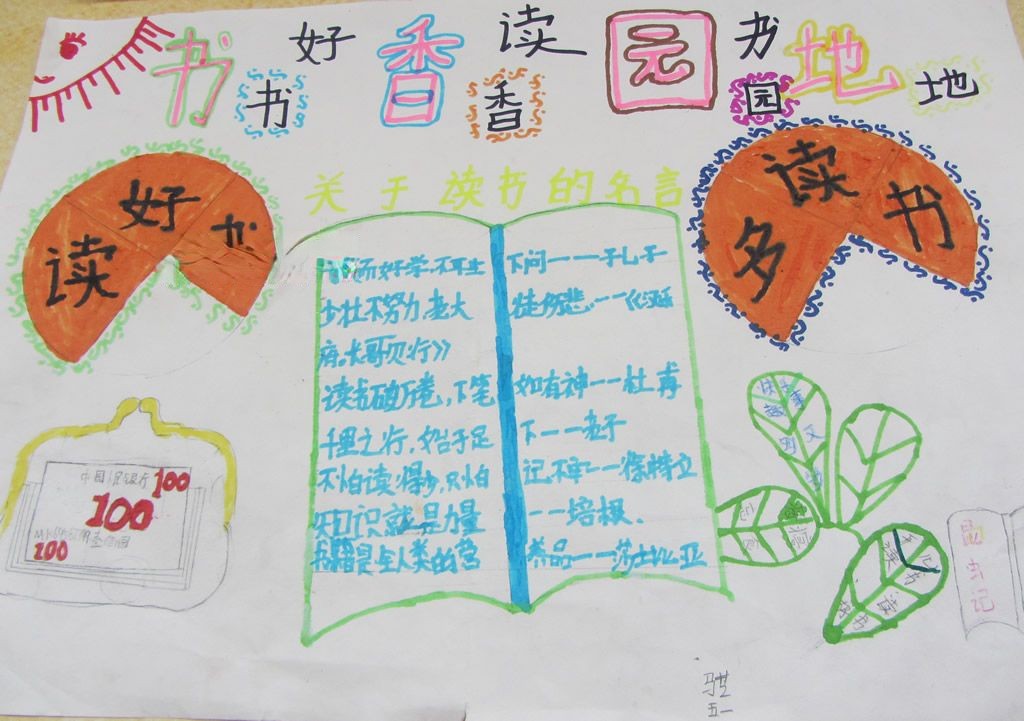 书 好 香 读 园 书 地
书 香 园 地
关于读书的名言
读 好 书
多 读 书
好学,不耻下问——孔子
少壮不努力,老大徒伤悲.——《汉乐
府.长歌
行》
读书破万卷,下笔如有神——杜甫
千里之行,始于足下——老子
不怕读得少,只怕记不牢——徐特立
知识就是力量——培根.
书籍是全人类的营养品——莎士比亚
中国
银行
100
100
100
读书
好书
虫
记
五一